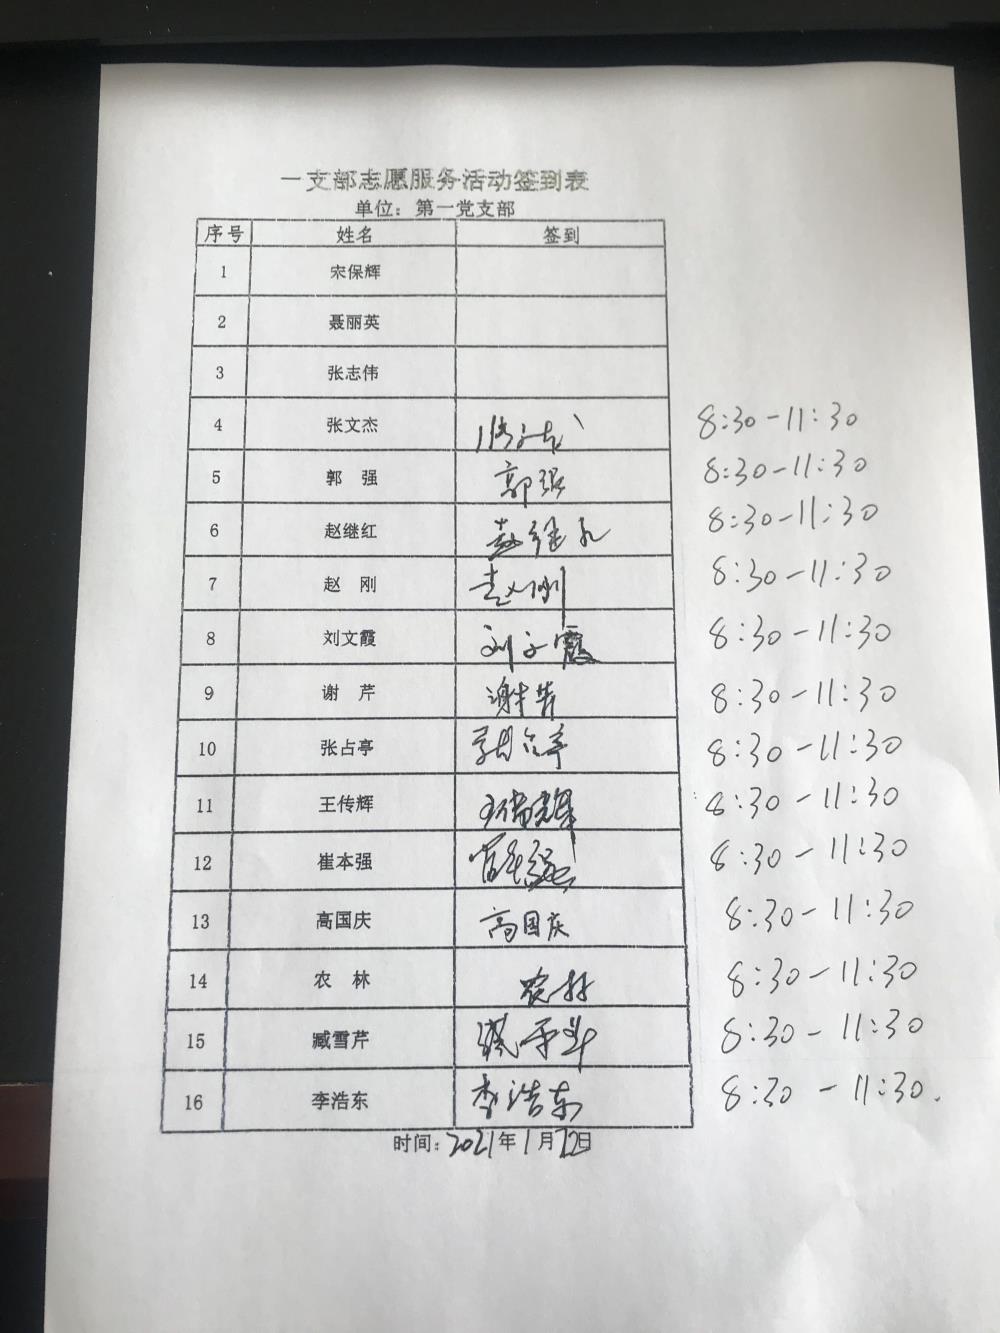 一支部志愿服务活动签到表
单位：第一党支部
序号 姓名 签到
1 宋保辉
2 聂丽英
3 张志伟
4 张文杰 8:30-11:30
5 郭 强 郭强 8:30-11:30
6 赵继红 赵继红 8:30-11:30
7 赵 刚 赵刚 8:30-11:30
8 刘文霞 刘文霞 8:30-11:30
9 谢 芹 谢芹 8:30-11:30
10 张占亭 张占亭 8:30-11:30
11 王传辉 王传辉 8:30-11:30
12 崔本强 崔本强 8:30-11:30
13 高国庆 高国庆 8:30-11:30
14 农 林 农林 8:30-11:30
15 臧雪芹 8:30-11:30
16 李浩东 李浩东 8:30-11:30.
时间：2021年1月22日